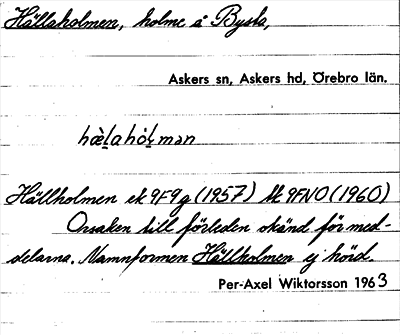 Hällaholmen, holme å Bysta,
Askers sn, Askers hd, Örebro län.
hæ̀l̠ahòl̠mən
Hällholmen ek 9F9g (1957) Mt 9FNO (1960)
Orsaken till förleden okänd för med-
delarna. Namnformen Hällholmen ej hörd.
Per-Axel Wiktorsson 1963